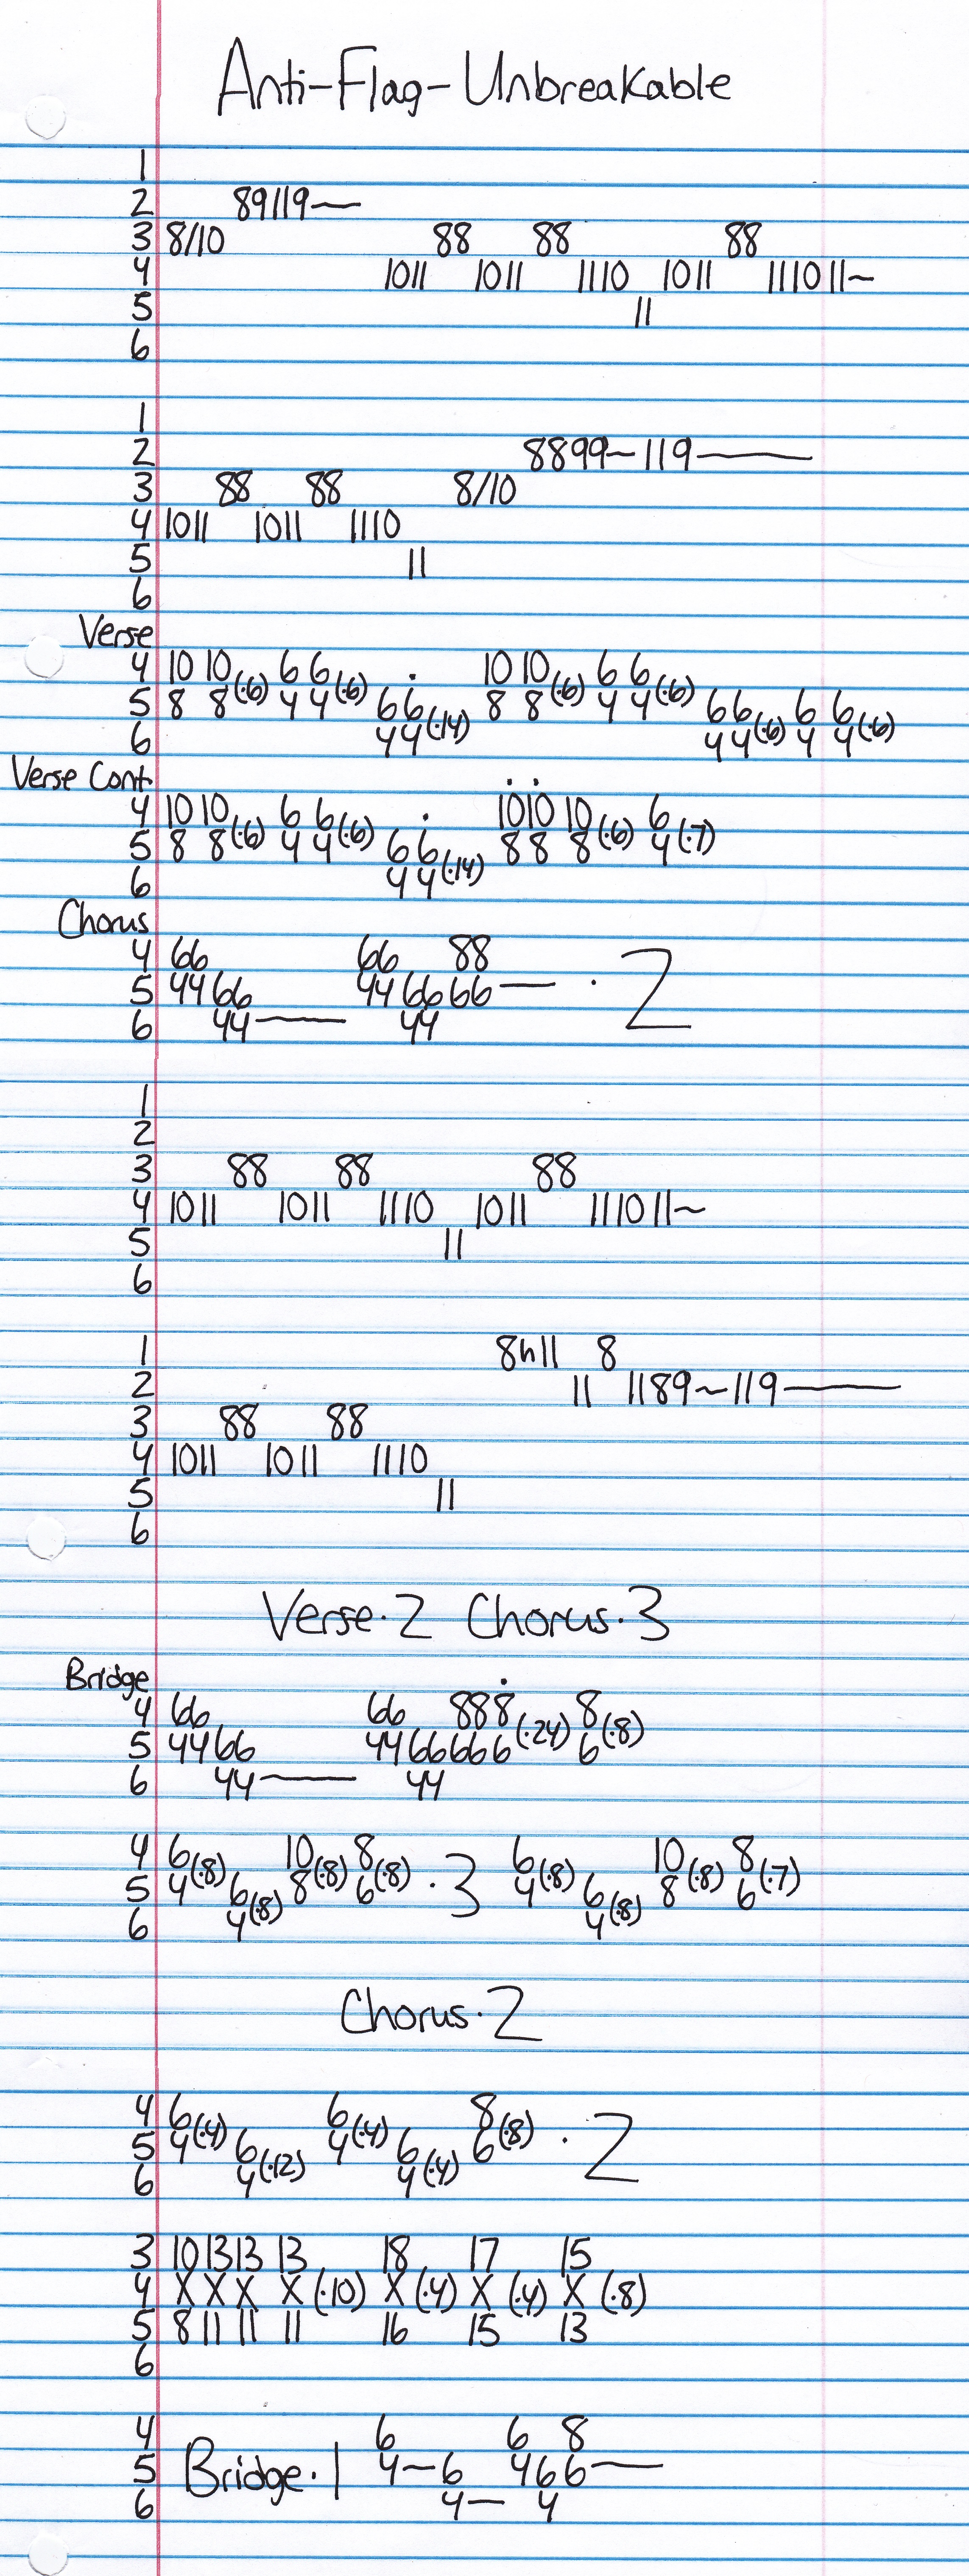 Anti-Flag-Unbreakable
1
2 89119—
3 8/10 88 88 88
4 1011 1011 1110 1011 111011~
5 11
6
1
2 8899~119—
3 88 88 8/10
4 1011 1011 1110
5 11
6
Verse
4 10 10 6 6 . 10 10 6 6
5 8 8(·6) 4 4(·6) 6 6 8 8(·6) 4 4(·6) 6 6 6 6
6 4 4(·14) 4 4(·6) 4 4(·6)
Verse Cont.
4 10 10 6 6 . 10 10 10 6
5 8 8(·6) 4 4(·6) 6 6 8 8 8(·6) 4(·7)
6 4 4(·14)
Chorus
4 66 66 88
5 4466 446666— · 2
6 44— 44
1
2
3 88 88 88
4 1011 1011 1110 1011 111011~
5 11
6
1 8h11 8
2 11 1189~119—
3 88 88
4 1011 1011 1110
5 11
6
Verse·2 Chorus·3
Bridge
4 66 66 888 8
5 4466 4466666(·24) 6(·8)
6 44— 44
4 6 10 8 6 10 8
5 4(·8) 6 8(·8) 6(·8) ·3 4(·8) 6 8(·8) 6(·7)
6 4(·8) 4(·8)
Chorus·2
4 6 6 8
5 4(·4) 6 4(·4) 6 6(·8) · 2
6 4(·12) 4(·4)
3 10 13 13 13 18 17 15
4 X X X X (·10) X (·4) X (·4) X (·8)
5 8 11 11 11 16 15 13
6
4 6 6 8
5 Bridge·1 4—6 466—
6 4— 4